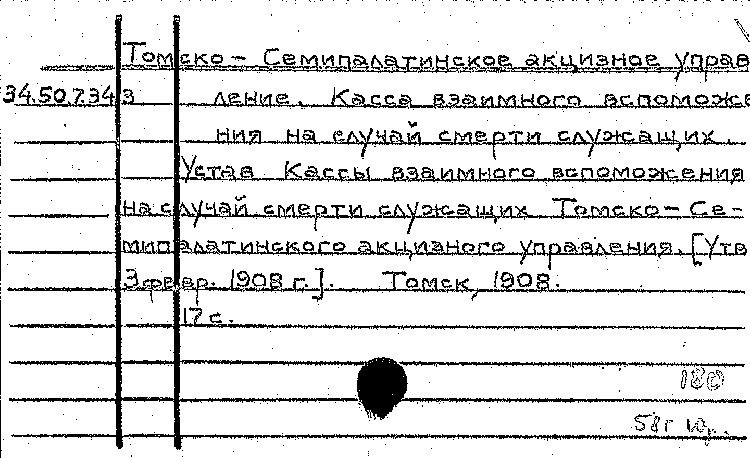 Томско – Семипалатинское акцизное управ
34.50.7.34 3 ление. Касса взаимного вспоможе
ния на случай смерти служащих.
Устав Кассы взаимного вспоможения
на случай смерти служащих Томско – Се-
мипалатинского акцизного управления. [Утв
3 февр. 1908 г.]. Томск, 1908.
17 с.
180
58г